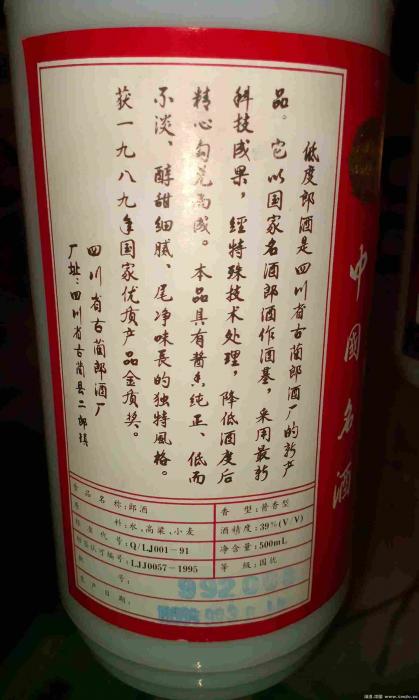 中國名酒
低度郎酒是四川省古蔺郎酒厂的新产
品。它以国家名酒郎酒作酒基,采用最新
科技成果,经特殊技术处理,降低酒度后
精心勾兑而成。本品具有酱香纯正、低而
不淡、醇甜细腻、尾净味長的独特風格。
获一九八九年国家优质产品金质奖。
四川省古蔺郎酒厂
厂址:四川省古蔺县二郎镇
食品名称:郎酒 香型:酱香型
原料:水,高粱、小麦 酒精度:39%(V/V)
标准代号:Q/LJ001-91 净含量:500mL
标签认可编号:LJJ0057-1995 等级:国优
批号:
生产日期: